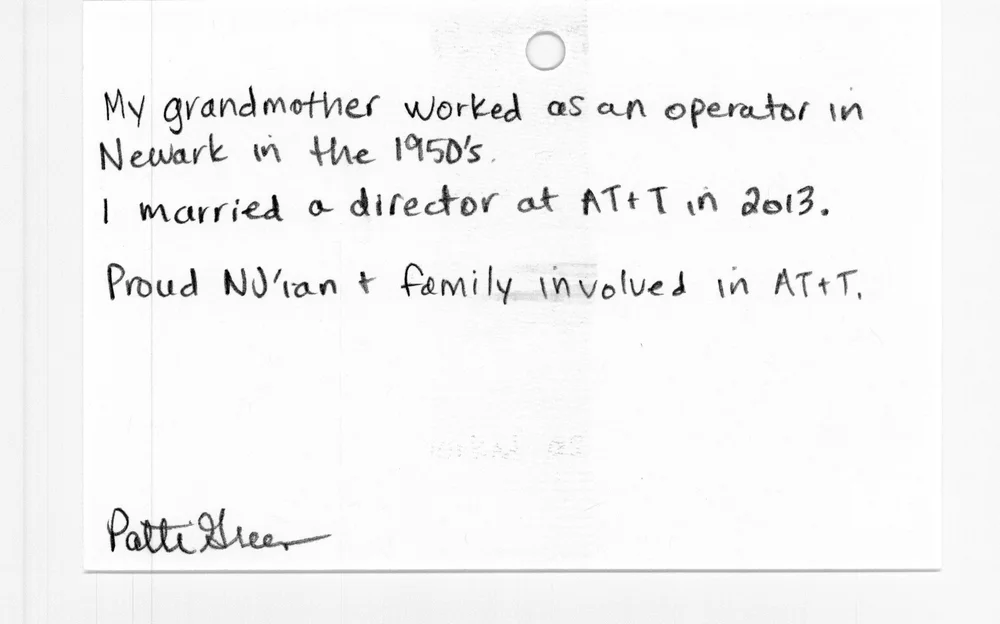 My grandmother worked as an operator in
Newark in the 1950's.
I married a director at AT+T in 2013.
Proud NJ'ian + family involved in AT+T.
Patti